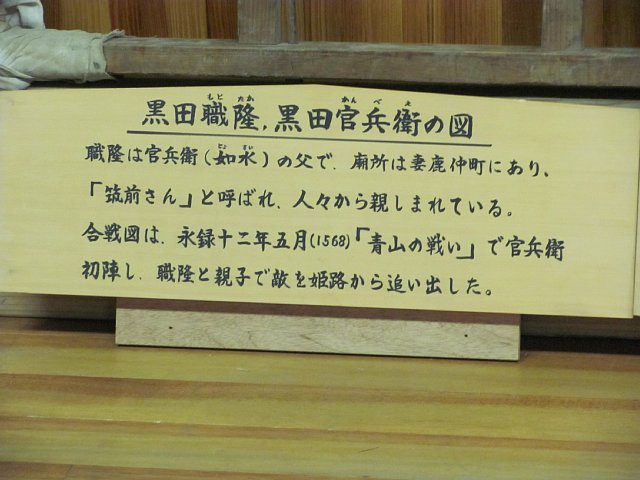 黒田職隆,黒田官兵衛の図
職隆は官兵衛(如水)の父で、廟所は妻鹿仲町にあり、
「筑前さん」と呼ばれ、人々から親しまれている。
合戦図は、永録十二年五月(1568)「青山の戦い」で官兵衛
初陣し、職隆と親子で敵を姫路から追い出した。